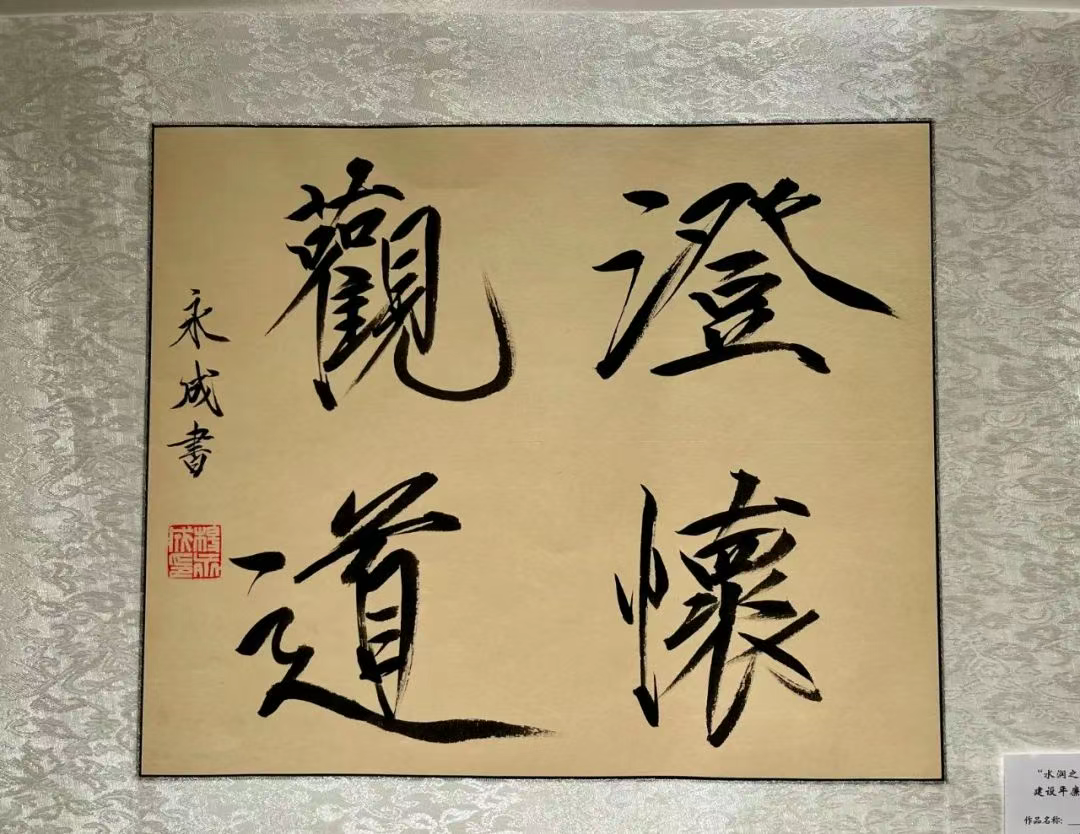 澄懷
觀道
永成書
"水润之
建设年廉
作品名称: